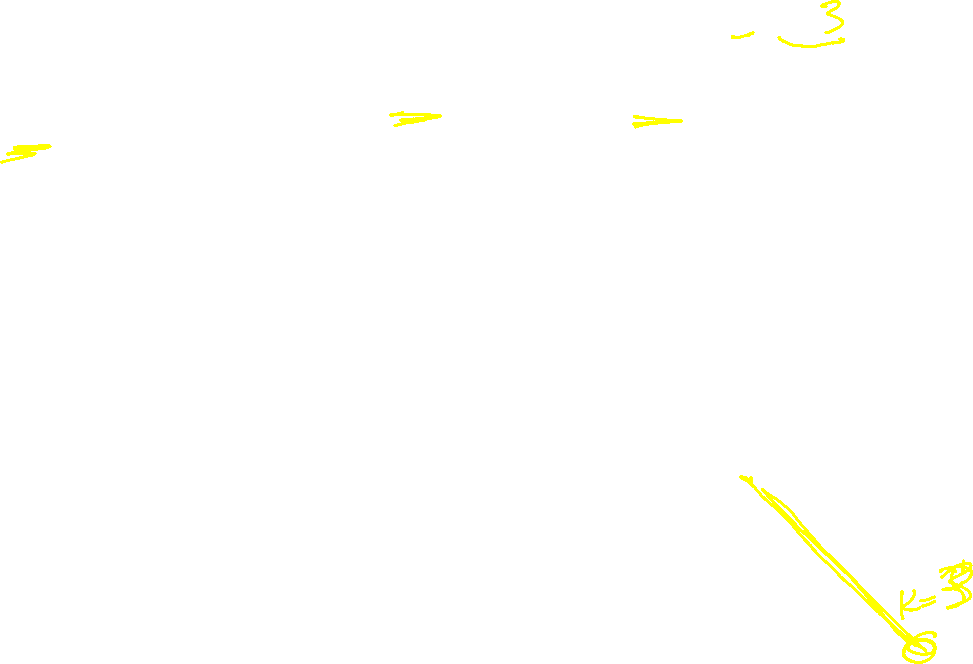 - 3
K=3